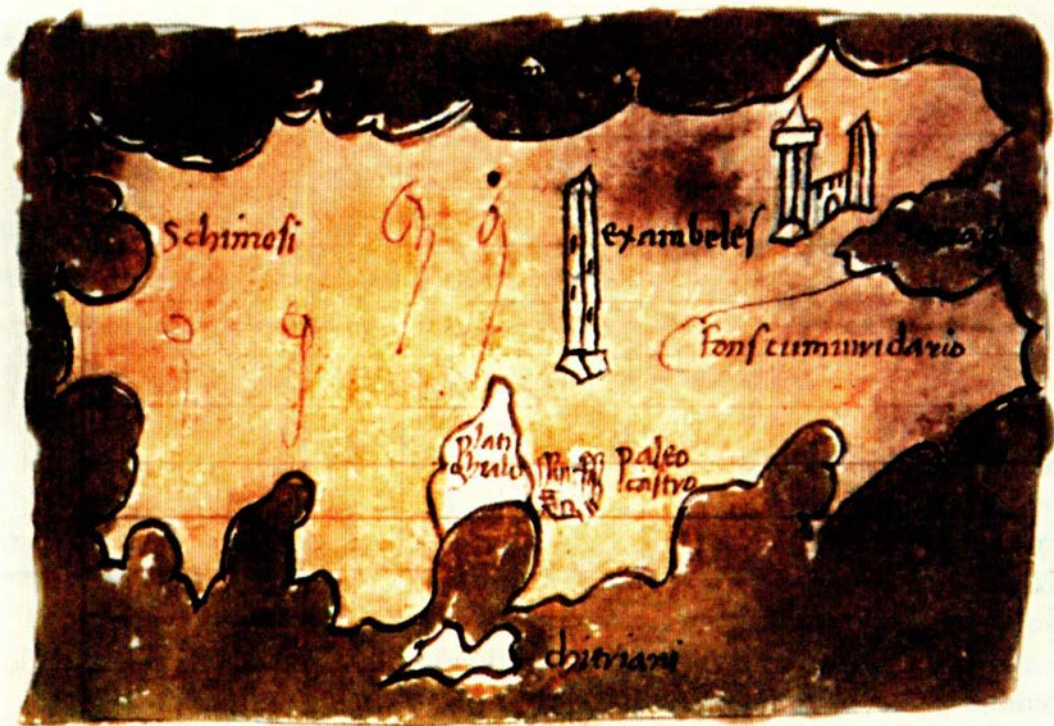 Schinosi
exambeles
fons cum uiridario
plati
gyalo
paleo
castro
chitriani